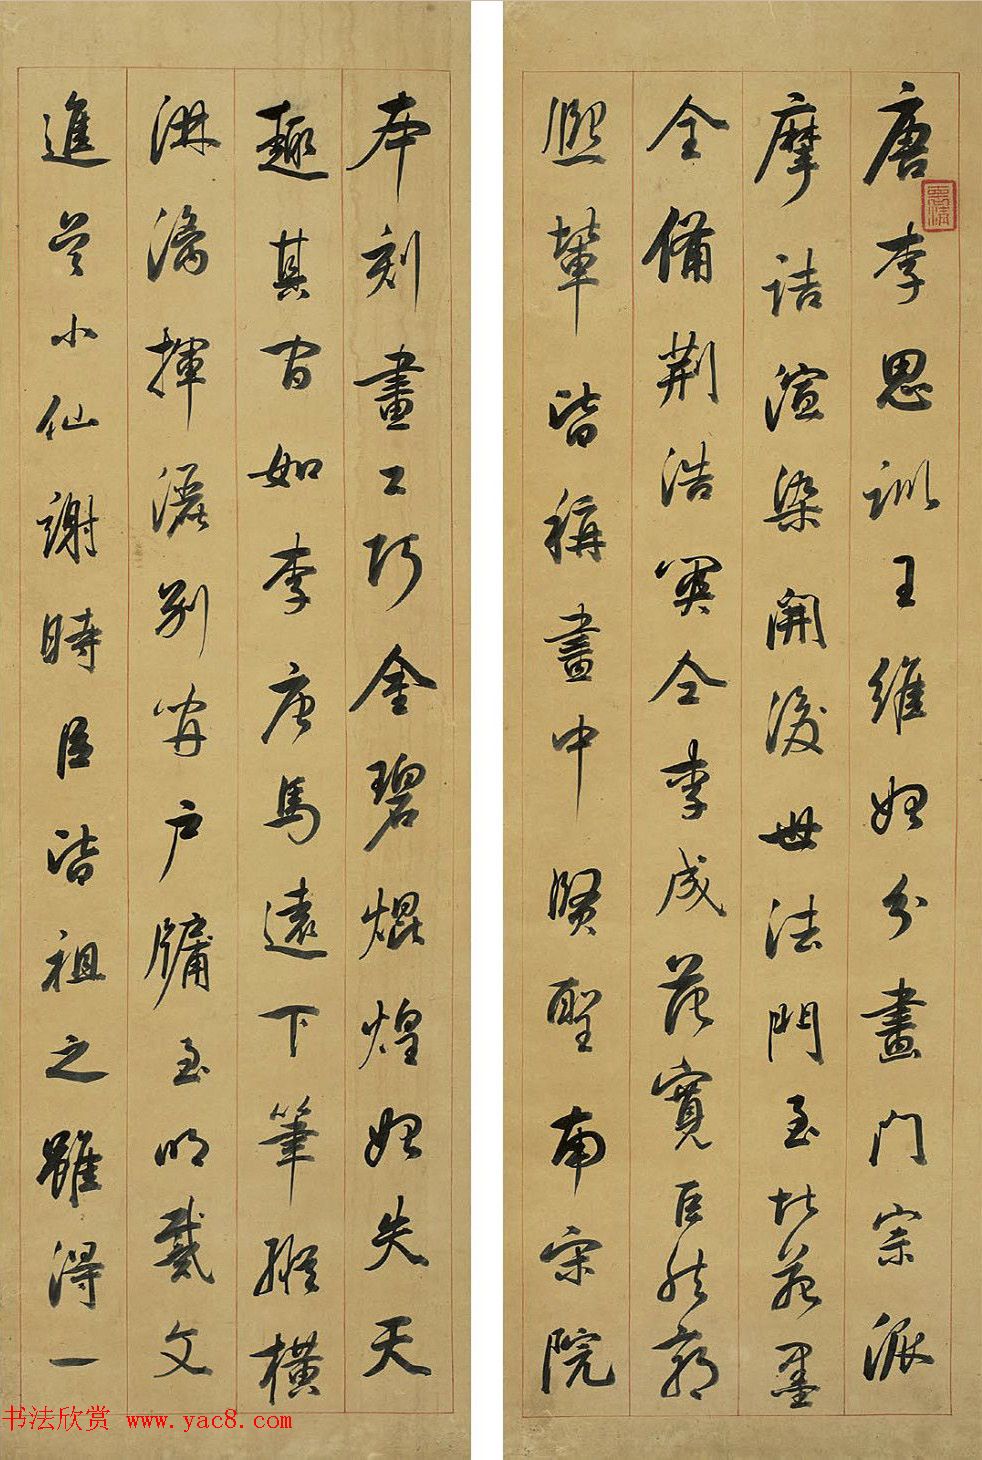 唐李思訓王維始分畫門宗派
摩詰渲染開後世法門至北苑墨
全備荆浩関仝李成范寬巨然郭
熙輩皆稱畫中賢聖南宋院
本刻畫工巧金碧焜煌始失天
趣其間如李唐馬遠下筆縱橫
淋漓揮灑別開戶牖至明戴文
進吴小仙謝時臣皆祖之雖得一
书法欣赏 www.yac8.com